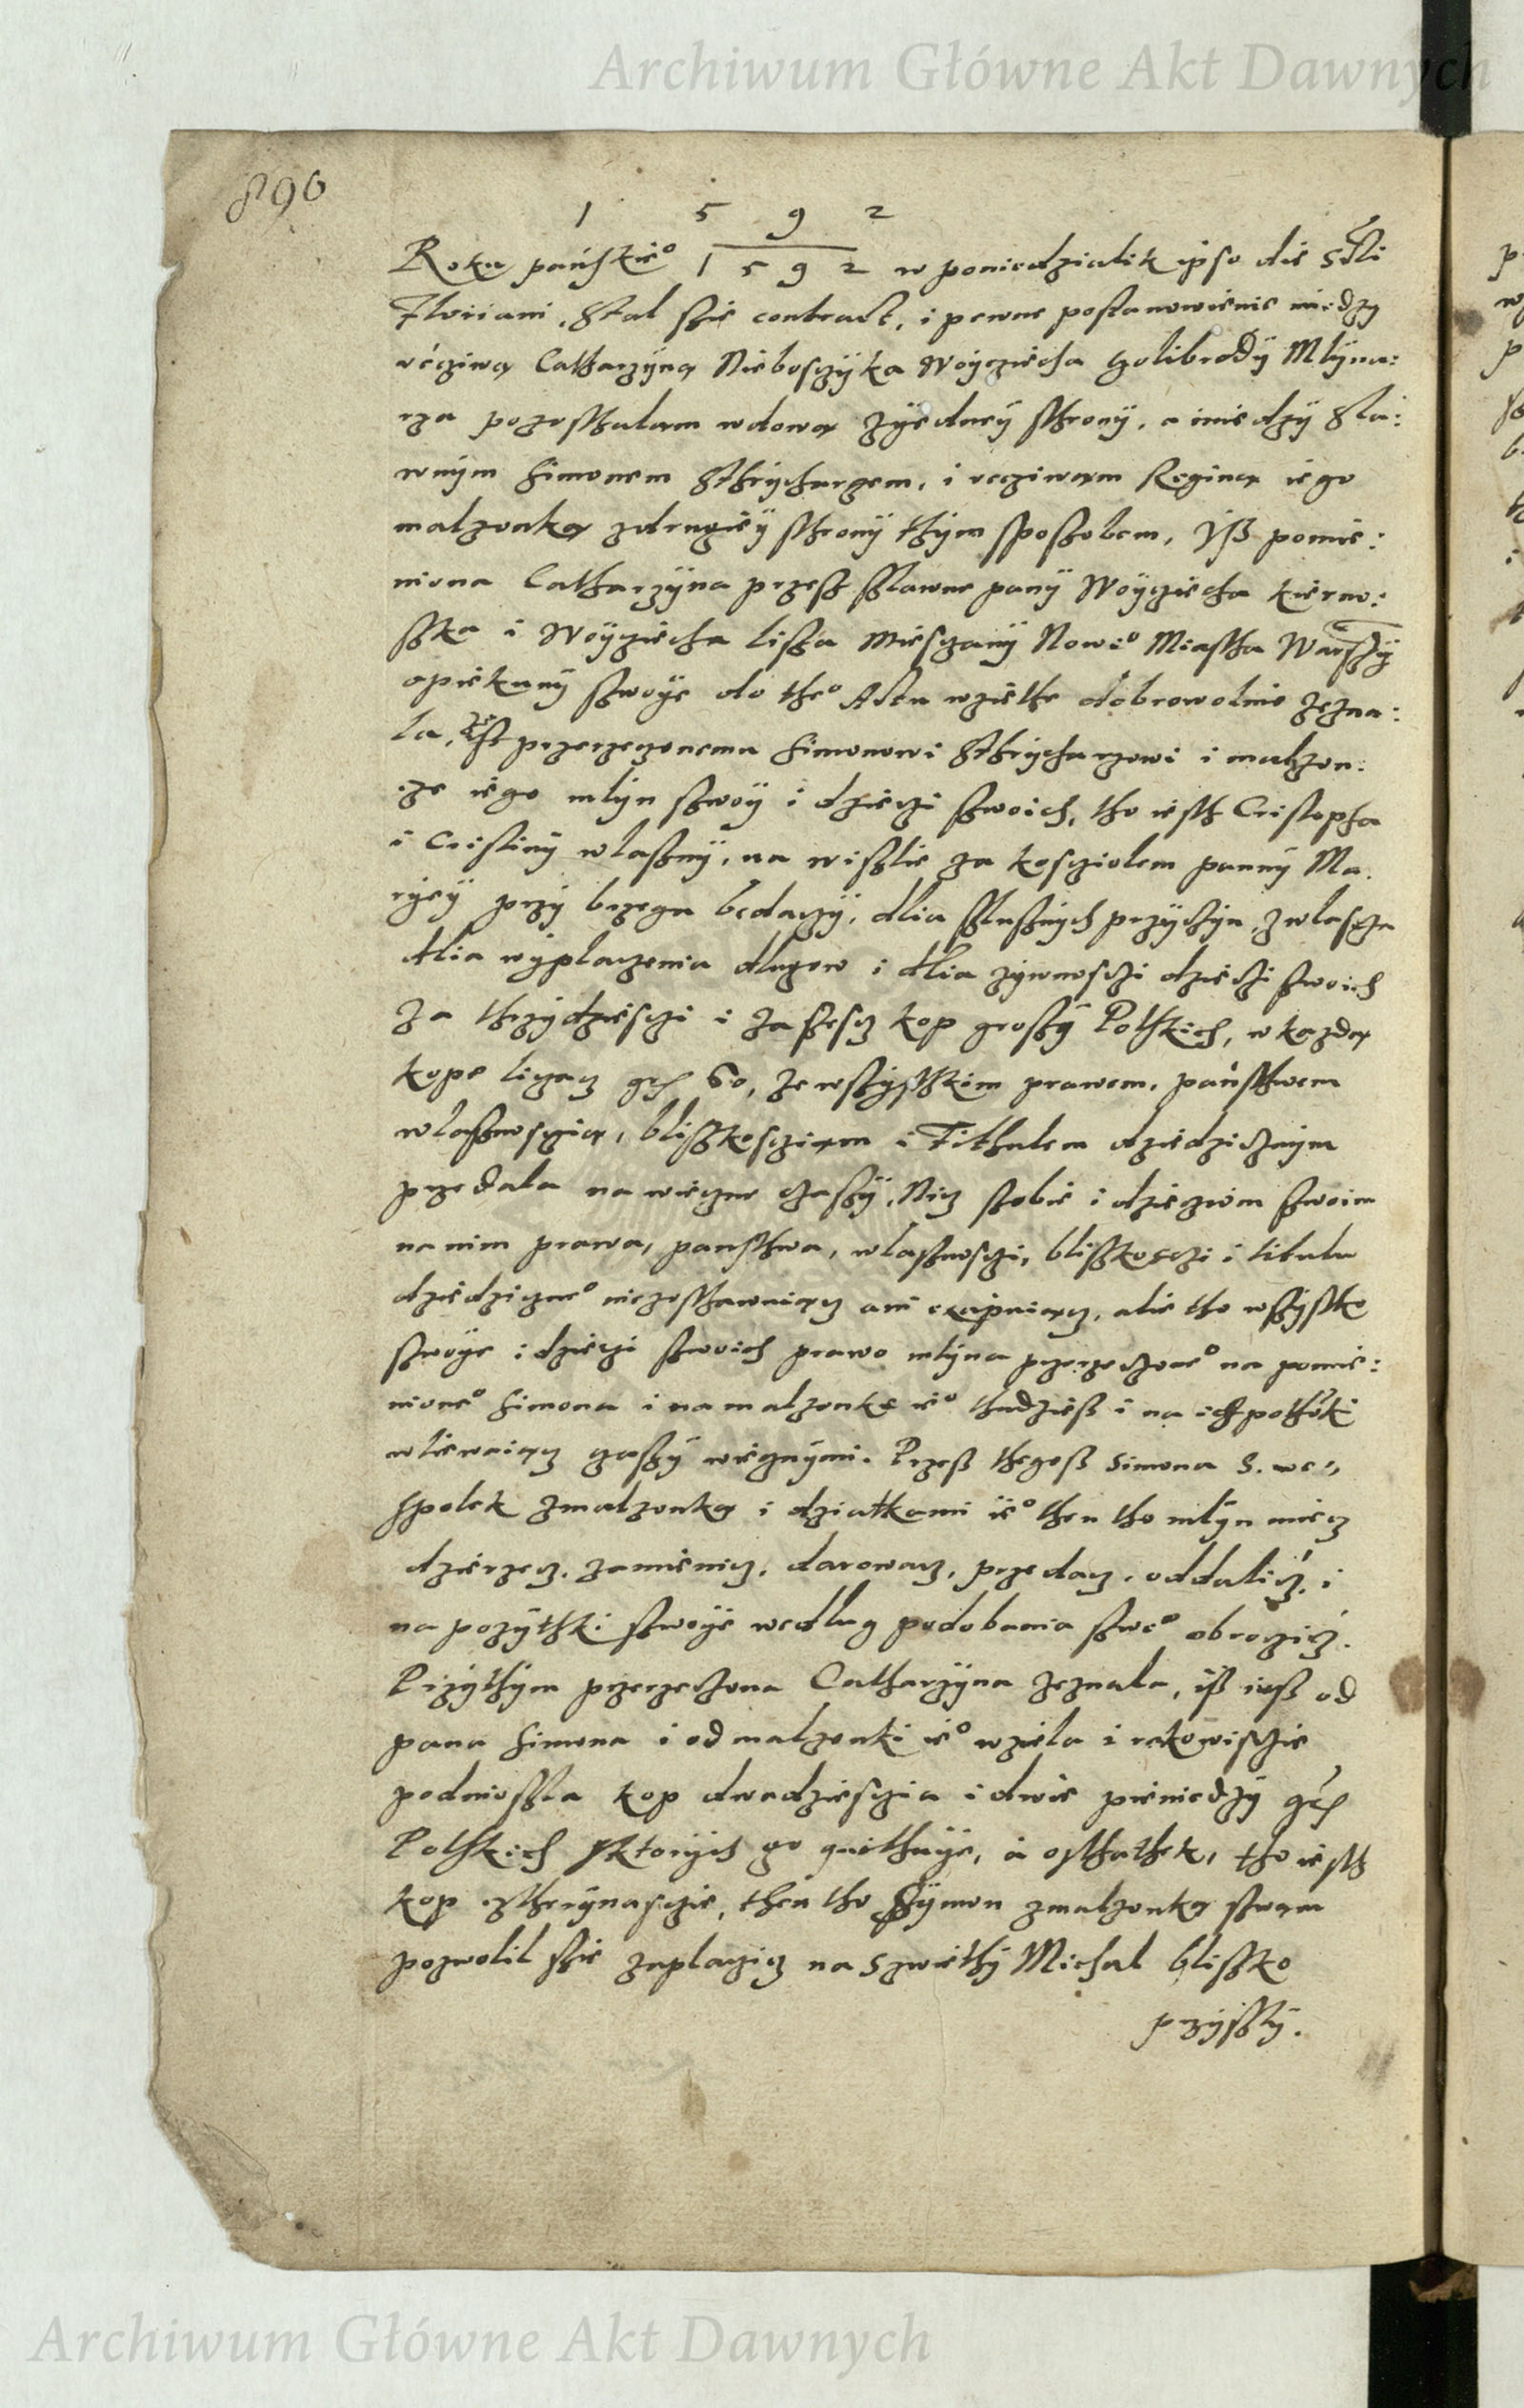 Archiwum Główne Akt Dawnych
890
1 5 9 2
Roku pańskie° 1592 w poniedzialik ipso die Scti
Floriani, Stal szie contract, i pewne postanowienie miedzy
vcziwą Catharzyną Nieboszyka Woyciecha Golibrody Mlyna:
rza pozosthalam wdową zyedney sthrony, a miedzy sla:
wnym Simonem Sthrycharzem, i vcziwąm Reginą iego
malzonką zdrugiey sthrony thym sposzobem, Ysz pomie:
niona Catharzyna przesz szlawne pany Woyciecha
szka i Woyciecha Liska miesczany Nowe° Miastha Warszy
opiekuny szwoye do the° Actu wziethe dobrowolnie zezna:
la, przerzeczonemu Simonowi Sthrycharzowi i malzon:
cze iego mlyn szwoy i dzieczi szwoich, tho iesth Cristopha
i Cristiny wlaszny, na wiszlie za kosciolem panny Ma.
ryey przy brzegu bedaczy, dlia szlusznych przyczyn, zwlascza
dlia wyplaczenia dlugow i dlia zywnosczi dzieczi swoich
za thrzydziesczi i za szescz kop groszy Polskich, w kazdą
kope licząc grs 60, ze wszysthkim prawem, państhwem
wlasznoscią, bliszkosciąm i Tithulem dziedzicznym
przedala na wieczne czaszy, Nicz szobie i dzieczióm szwoim
na nim prawa, pansthwa, wlasznosczi, bliszkosczi i titulu
dziedziczne° niezosthawuiącz ani, alie tho wszystko
szwoye i dzieczi szwoich prawo mlyna przerzeczone° na pomie:
nione° Simona i na malzonke ie° thudziesz i na ich pothómki
wliewaiącz czaszy wiecznymi. Przesz thegosz Simona S. we=
spolek zmalzonką i dziatkami ie° then tho mlyn miecz
dzierzecz, zamienicz, darowacz, przedacz, oddalicz, i
na pozythki szwoye wedlug podobania szwe° obroczicz.
Przythym przerzeczona Catharzyna zeznala, isz iusz od
pana Simona i od malzonki ie° wziela i rekowiscie
podniosla kop dwadziescia i dwie pieniedzy grs
Polskich zktorych go quithuye, a osthathek, tho iesth
kop cztherynascie, then tho Szymon zmalzonką swąm
pozwolil szie zaplaczicz na Szwiethy Michal bliszko
przyszly.
Archiwum Główne Akt Dawnych